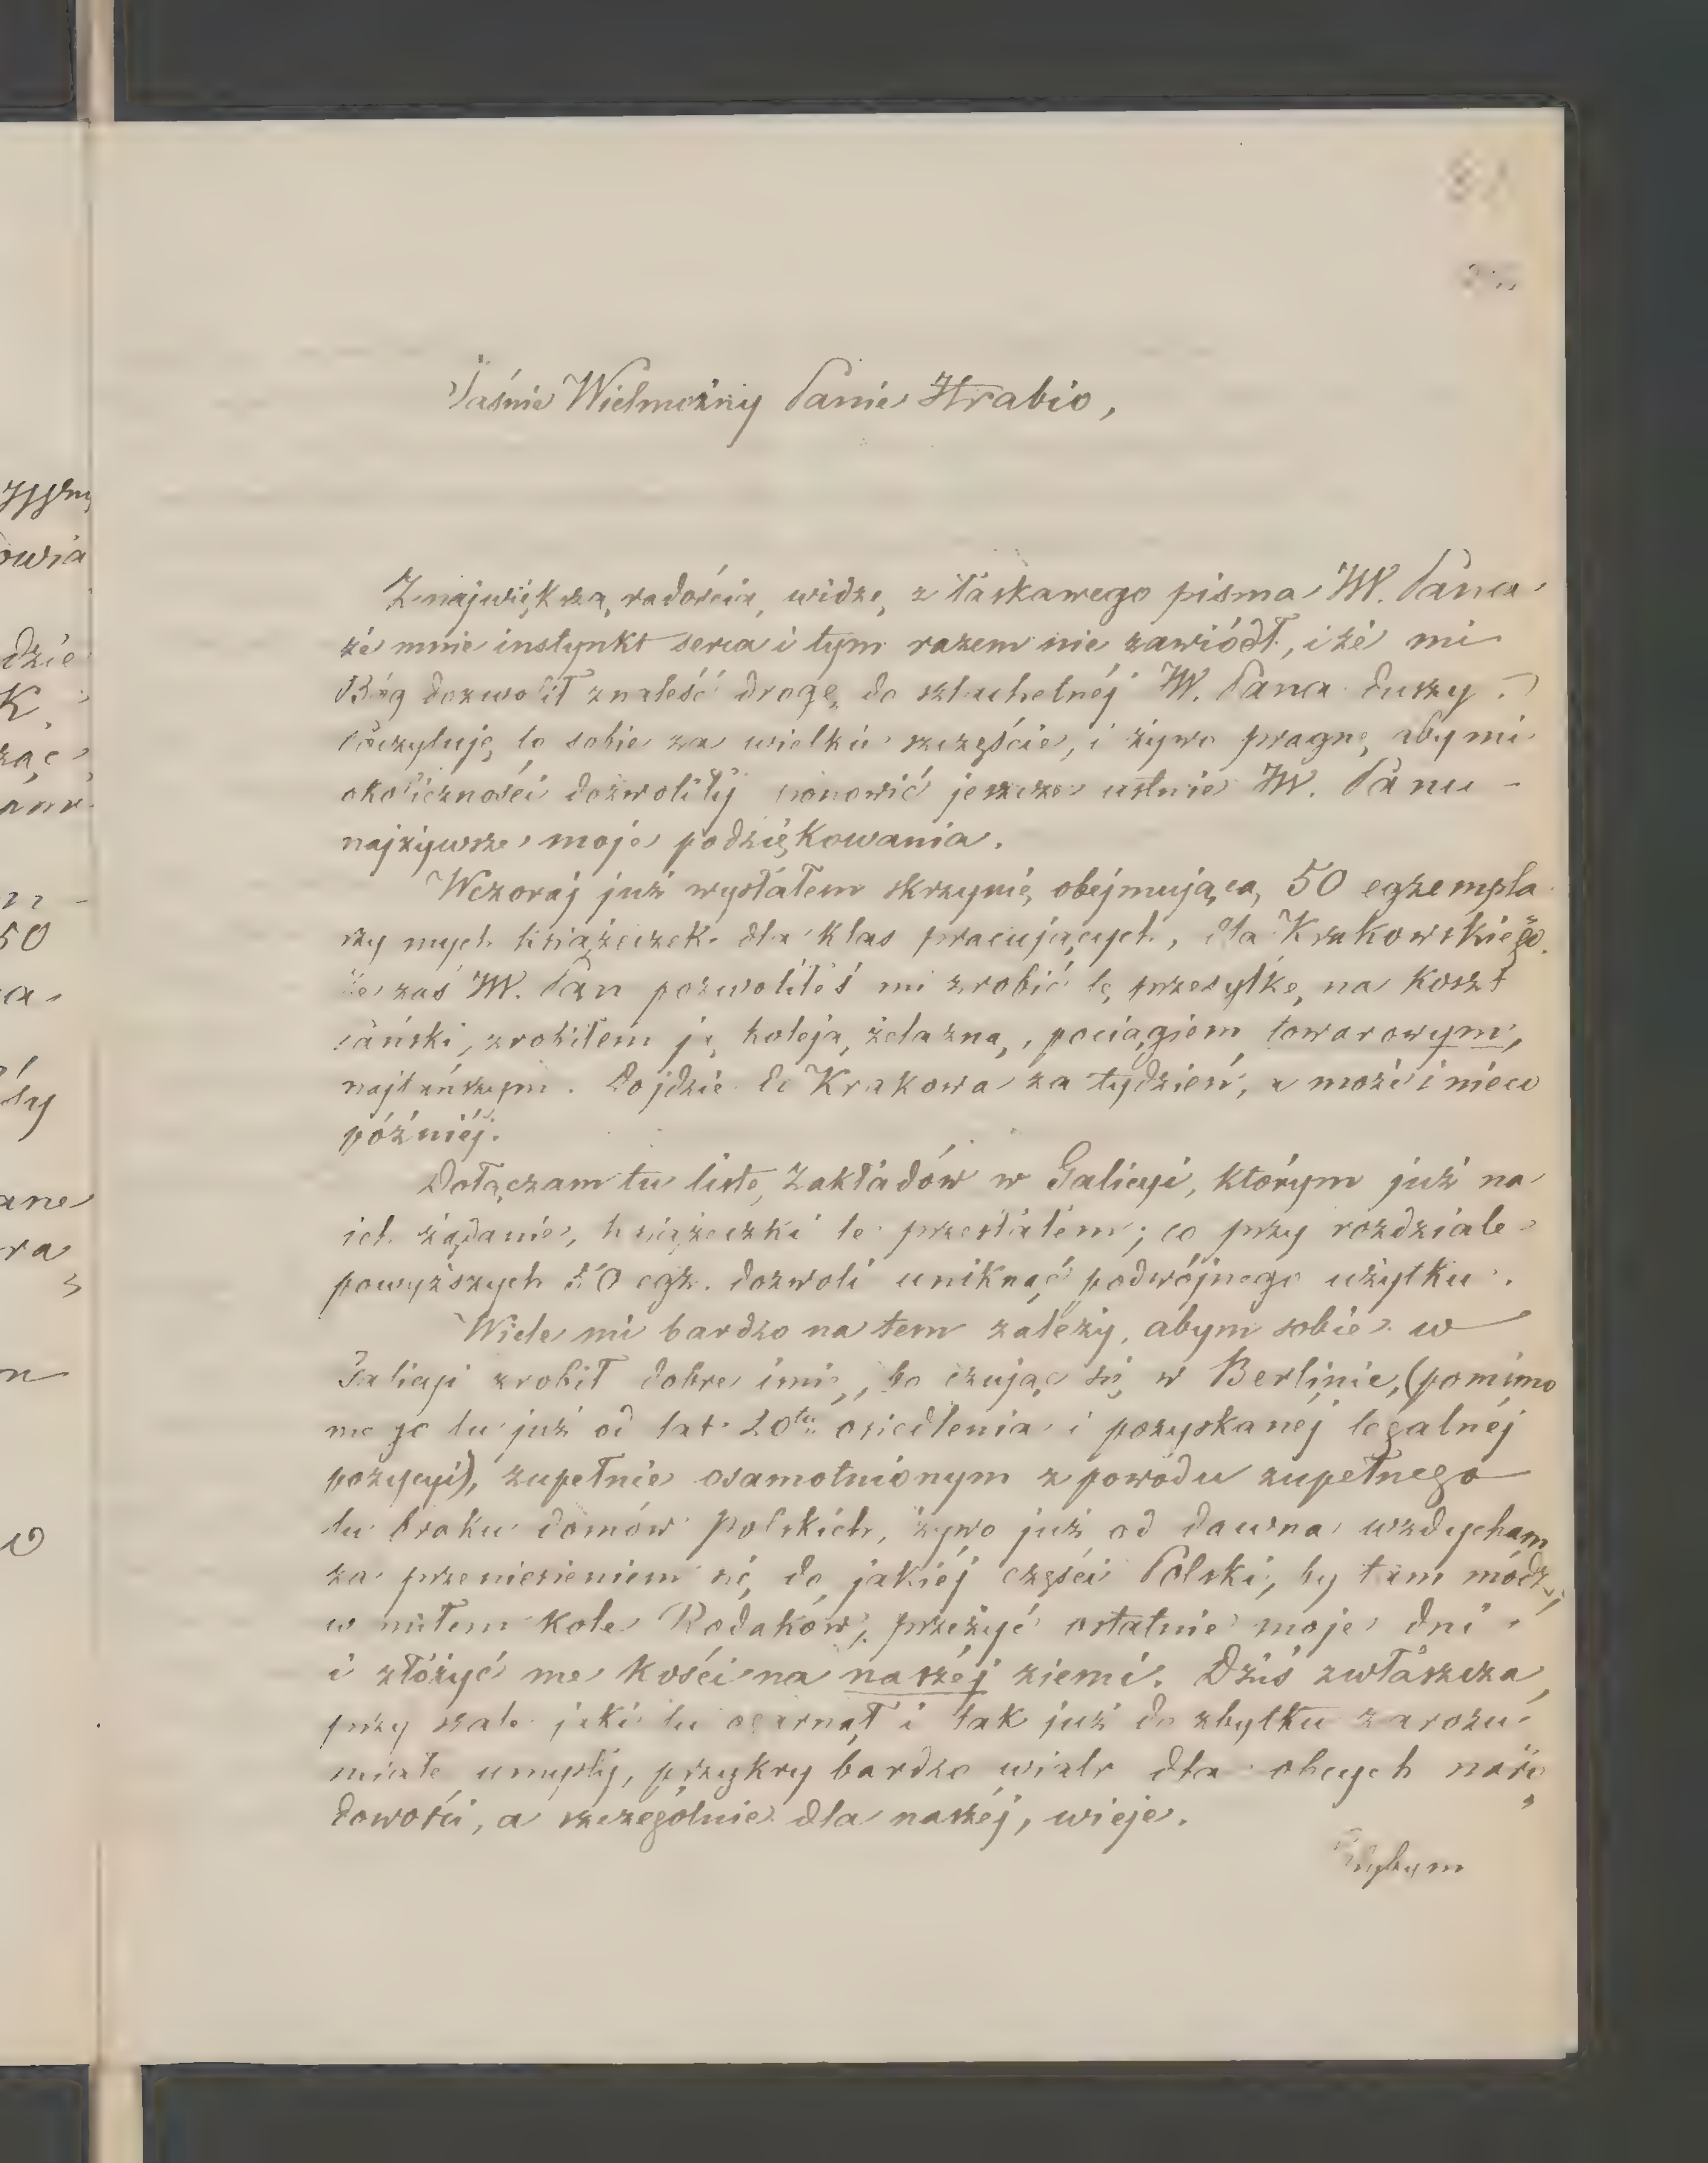 Jaśnie Wielmożny Panie Hrabio,
Z największą radością widzę z łaskawego pisma W. Pana
że mnie instynkt serca i tym razem nie zawiódł, i że mi
Bóg dozwolił znaleść drogę do szlachetnéj W. Pana duszy.
Poczytuję to sobie za wielkie szczęście, i żywo pragnę, aby mi
okoliczności dozwoliły ponowić jeszcze ustnie W. Panu
najżywsze moje podziękowania.
Wczoraj już wysłałem skrzynię obejmującą 50 egzempla
rzy mych książeczek dla klas pracujących, dla Krakowskiego.
Że zaś W. Pan pozwoliłeś mi zrobić tę przesyłkę na koszt
Pański, zrobiłem ją koleją żelazną, pociągiem towarowym,
najtańszym. Dojdzie do Krakowa za tydzień, a może i nieco
późniéj.
Dołączam tu listę Zakładów w Galicyi, którym już na
ich żądanie, książeczki te przesłałem; co przy rozdziale
powyższych 50 egz. dozwoli uniknąć podwójnego użytku.
Wiele mi bardzo na tem zależy, abym sobie w
Galicyi zrobił dobre imię, bo czując się w Berlinie, (pomimo
mego tu już od lat 20tu osiedlenia i pozyskanéj legalnéj
pozycyi), zupełnie osamotnionym z powodu zupełnego
tu braku domów Polskich, żywo już od dawna wzdycham
za przeniesieniem się do jakiéj części Polski, by tam módz
w miłem kole Rodaków, przeżyć ostatnie moje dni
i złożyć me kości na naszéj ziemi. Dziś zwłaszcza,
przy szale jaki tu ogarnął i tak już do zbytku zarozu
miałe umysły, przykry bardzo wiatr dla obcych naro
dowości, a szczególnie dla naszéj, wieje.
Gdybym